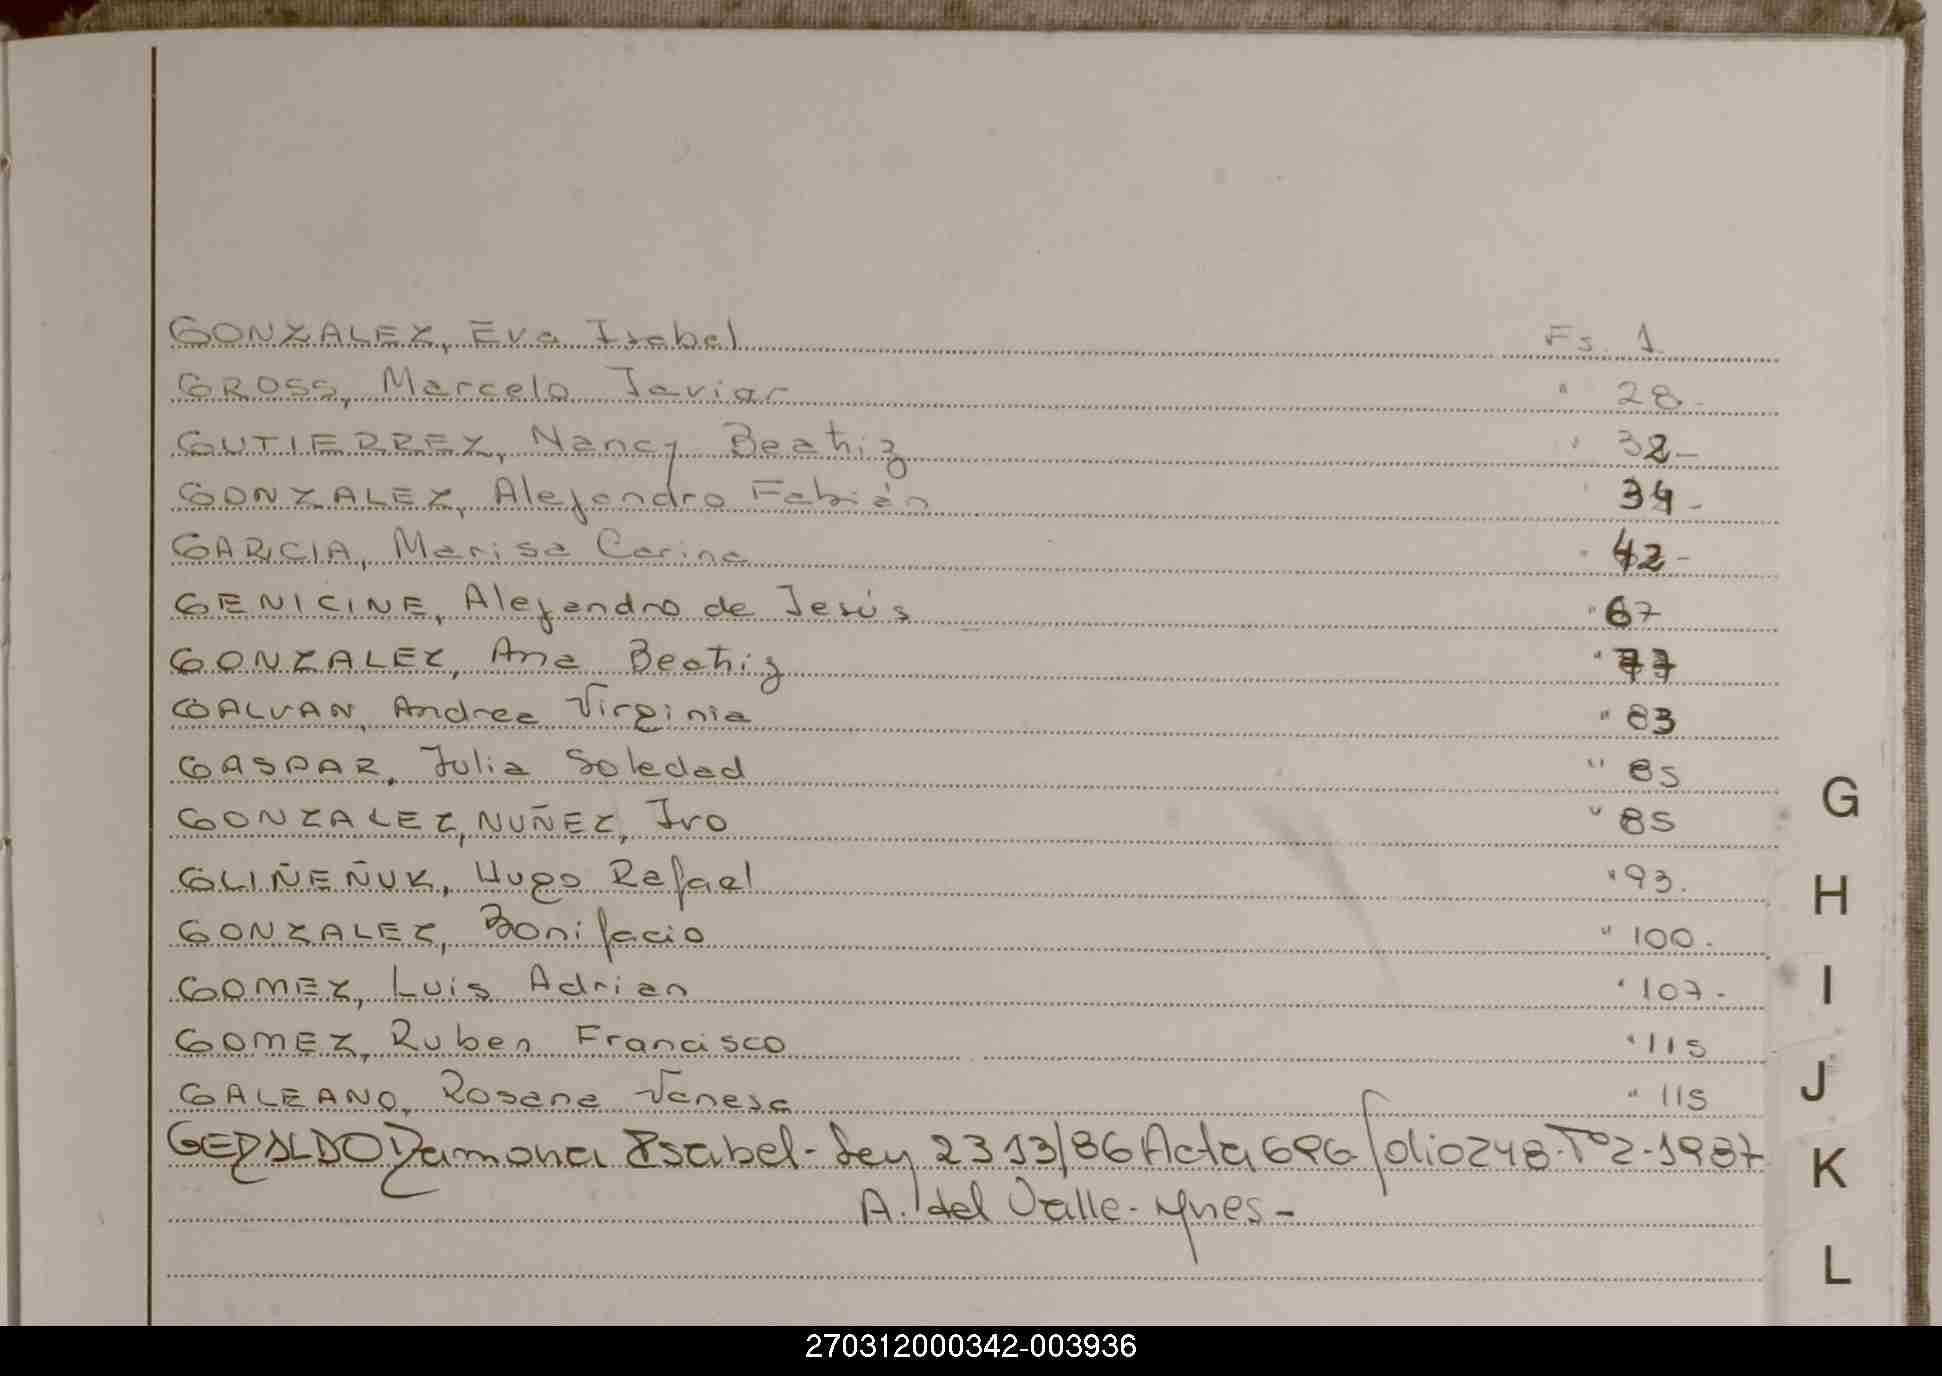 GONZALEZ, Eva Isabel Fs. 1
GROSS, Marcelo Javier " 28-
GUTIERREZ, Nancy Beatriz " 32-
GONZALEZ, Alejandro Fabián " 34-
GARCIA, Marisa Carina " 42-
GENICINE, Alejandro de Jesús " 67
GONZALEZ, Ana Beatriz " 77
GALVAN, Andrea Virginia " 83
GASPAR, Julia Soledad " 85
GONZALEZ, NUÑEZ, Ivo " 85
GLIÑEÑUK, Hugo Rafael " 93.
GONZALEZ, Bonifacio " 100.
GOMEZ, Luis Adrian " 107-
GOMEZ, Ruben Francisco " 115
GALEANO, Rosana Vanesa " 115
GERALDO Ramona Isabel- Ley 2313/86 Acta 696 folio 248-Tº2-1987
A. del Valle- Ynes-
G
H
I
J
K
L
270312000342-003936